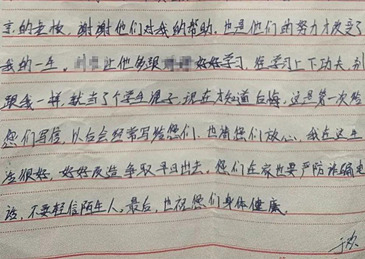 享的走校，谢谢他们对我的帮助，也是他们的努力才改变了
我的一生。让他好好学习，在学习上下功夫，别
跟我一样，就当了个学生混子，现在才知道后悔，这是第一次给
您们写信，以后会经常写给您们，也请您们放心，我在这生
活很好，好好改造争取早日出去，您们在家也要严防诈骗电
话，不要轻信陌生人。最后，也祝您们身体健康。